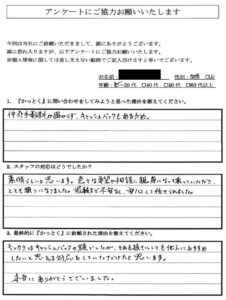 アンケートにご協力お願いいたします
今回は当社にご依頼いただきまして、誠にありがとうございます。
誠に恐れ入りますが、以下アンケートにご協力お願いいたします。
※個人情報に関しては差し支えない範囲でご記入頂けますと幸いでございます。
お名前 性別 男性 □女
年齢 20代 □30代 □40代 □50代 □60代以上
1. 『かっとく』に問い合わせをしてみようと思った理由を教えてください。
仲介手数料が掛からず、キャッシュバックもあるため。
2. スタッフの対応はどうでしたか？
素晴らしいと思います。色々な希望や相談に親身になっていただき、
とても頼りになりました。 不安なく、安心して任せられました。
3. 最終的に『かっとく』に依頼された理由を教えてください。
キッカケはキャッシュバックの 、それを抜きにしても他人におすすめ
したいと思える対応をしていただけたと思います。
本当にありがとうございました。